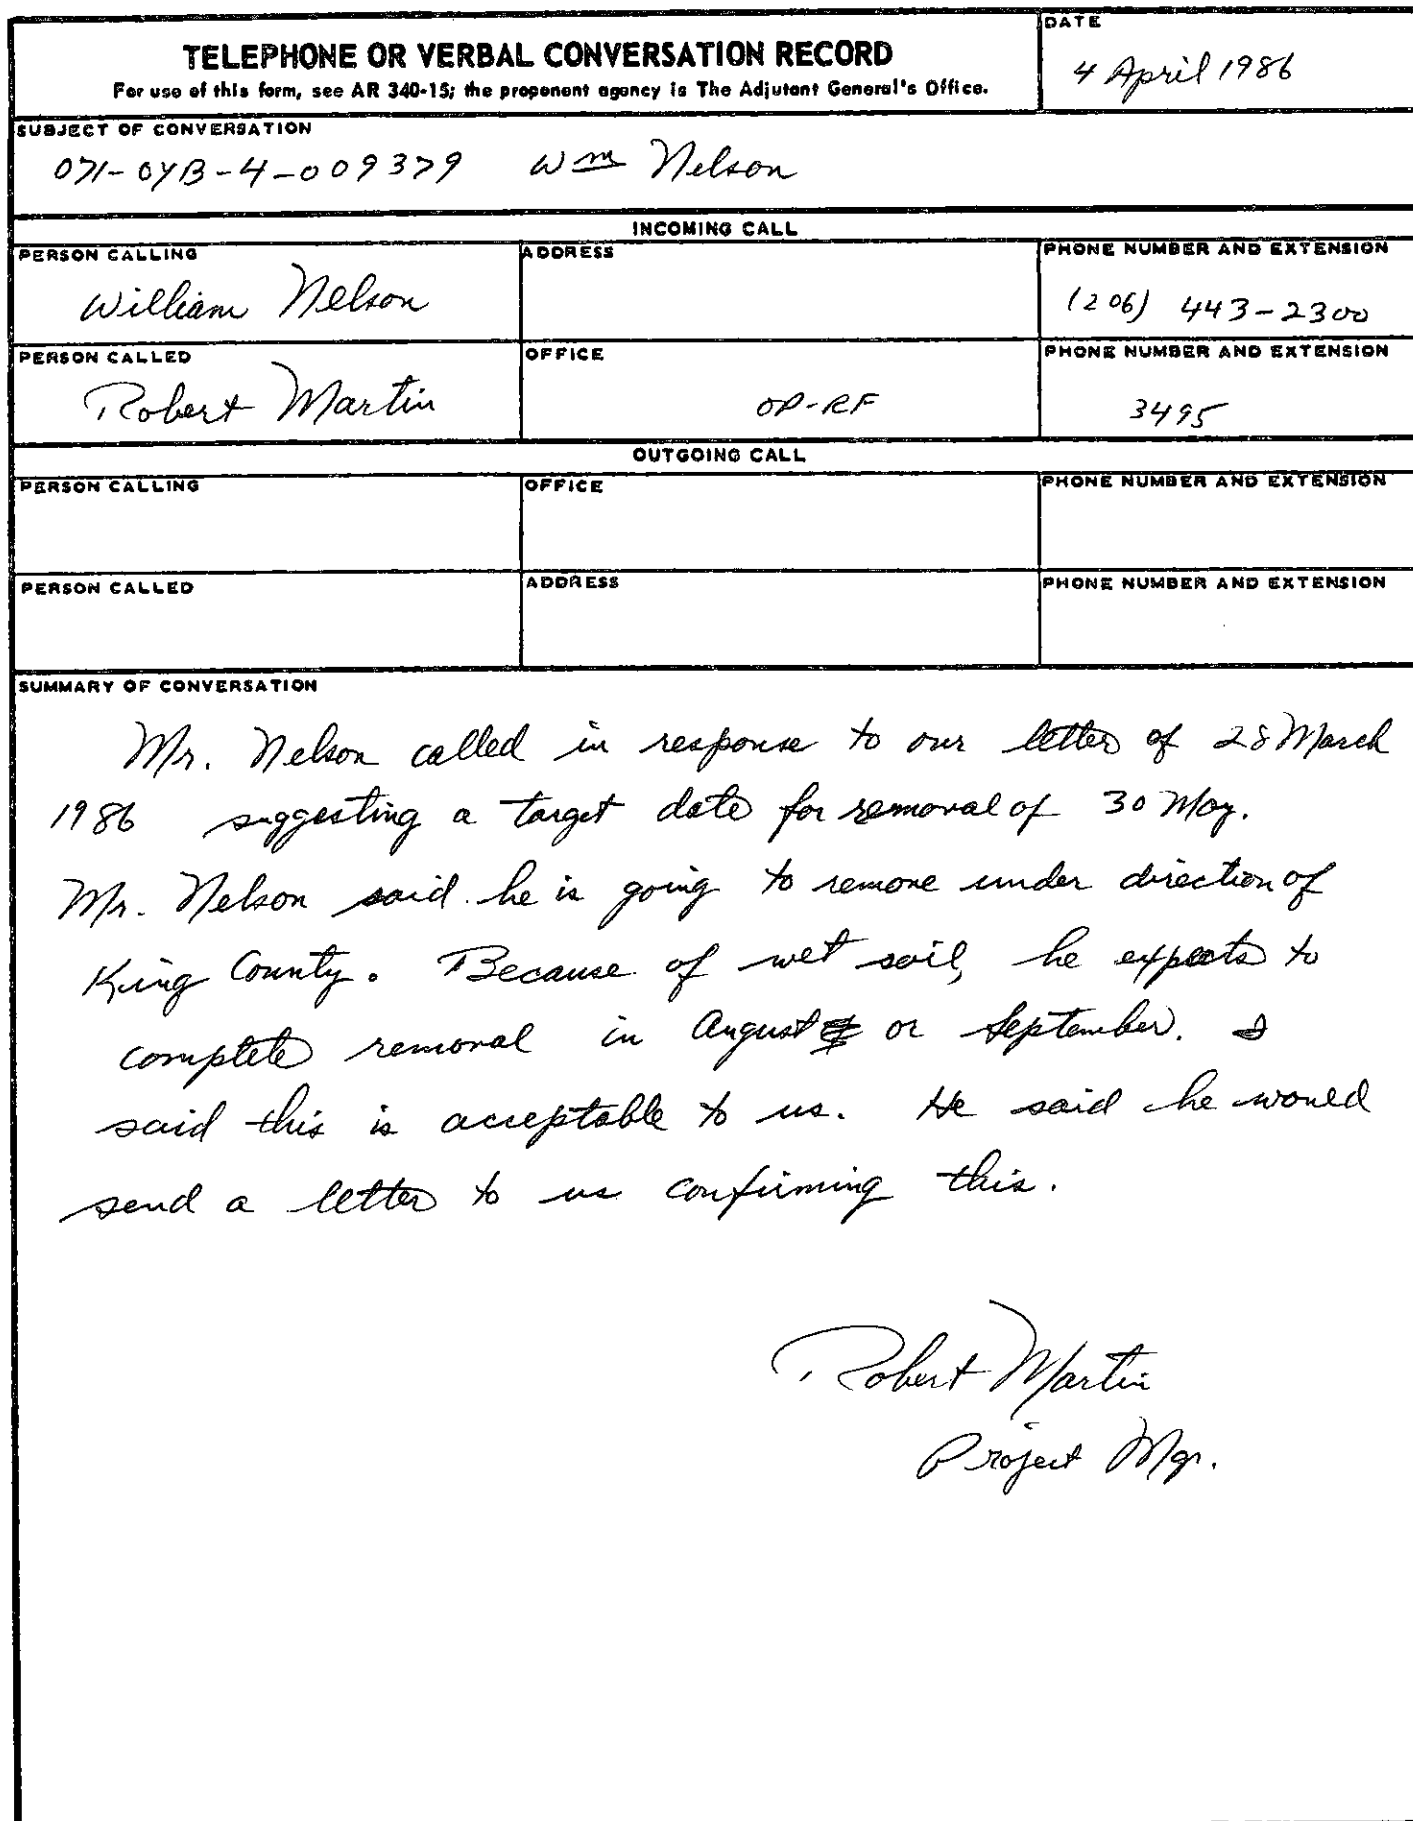 TELEPHONE OR VERBAL CONVERSATION RECORD
For use of this form, see AR 340-15; the proponent agency is The Adjutant General's Office.
DATE
4 April 1986
SUBJECT OF CONVERSATION
071-0YB-4-009379 Wm Nelson
INCOMING CALL
PERSON CALLING
William Nelson
ADDRESS
PHONE NUMBER AND EXTENSION
(206) 443-2300
PERSON CALLED
Robert Martin
OFFICE
OP-RF
PHONE NUMBER AND EXTENSION
3495
OUTGOING CALL
PERSON CALLING
OFFICE
PHONE NUMBER AND EXTENSION
PERSON CALLED
ADDRESS
PHONE NUMBER AND EXTENSION
SUMMARY OF CONVERSATION
Mr. Nelson called in response to our letter of 28 March
1986 suggesting a target date for removal of 30 May.
Mr. Nelson said he is going to remove under direction of
King County. Because of wet soil, he expects to
complete removal in August or September. I
said this is acceptable to us. He said he would
send a letter to us confirming this.
Robert Martin
Project Mgr.